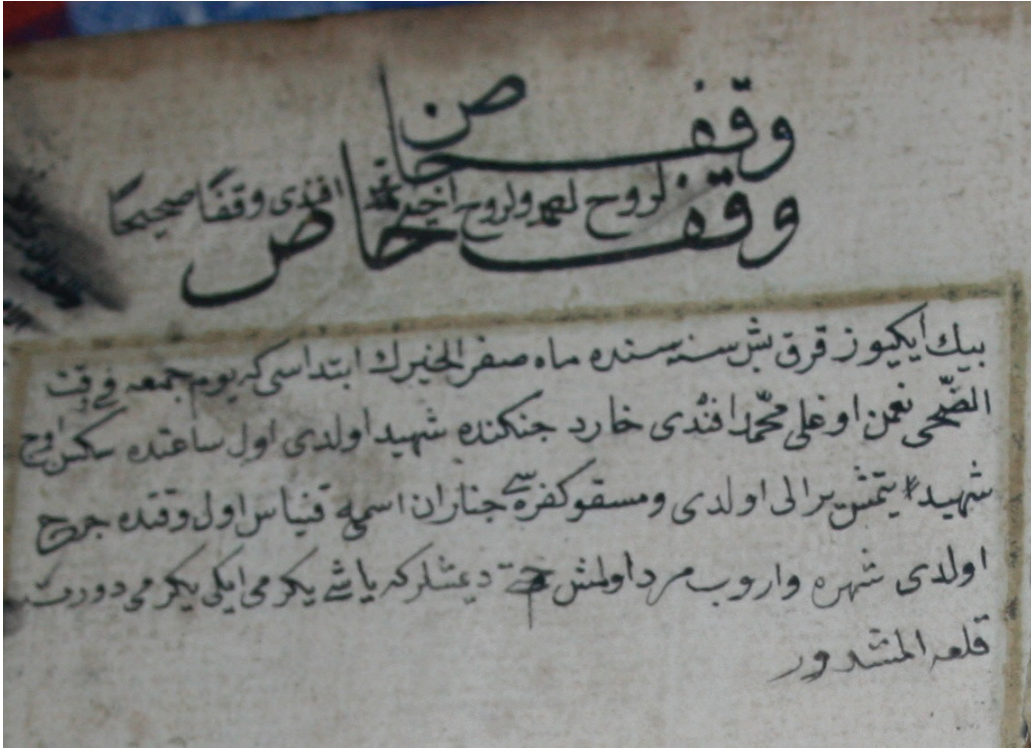 وقف خاص
لروح لهم ولروح اخيه محمد افندى وقفًا صحيحًا
وقف خاص
بيك ايكيوز قرق بش سنه سنده ماه صفر الخيرك ابتداسى كه يوم جمعه فى وقت
الضّحى نعمن اوغلى محمّد افندى خارد جنكنده شهيد اولدى اول ساعتده سكسن اوچ
شهيد يتمش يرالى اولدى ومسقو كفره سى جناران اسمه قنياس اول وقتده جرح
اولدى شهره واروب مرد اولمش ديمشلر كه ياشى يكرمى ايكى يكرمى دورت
قلعه المشدور